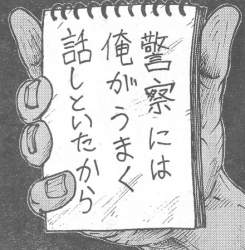 警察には
俺がうまく
話しといたから